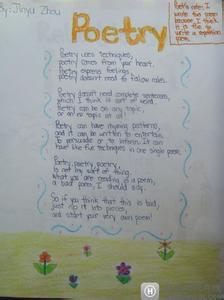 By: Jinyu Zhou
Poetry
Poet's note: I
wrote this poem
because I think
it is fun to
write a repetition
poem.
Poetry uses techniques,
poetry comes from your heart.
Poetry express feelings
poetry doesn't need to follow rules.
Poetry doesn't need complete sentences,
which I think is sort of weird.
Poetry can be on any topic,
or on no topic at all!
Poetry can have rhyming patterns,
and it can be written to entertain,
To persuade or to inform. It can
have like five techniques in one single poem.
Poetry, poetry, poetry,
is not my sort of thing.
What you are reading is a poem,
a bad poem, I should say.
So if you think that this is bad,
just rip it into pieces,
and start your very own poem!